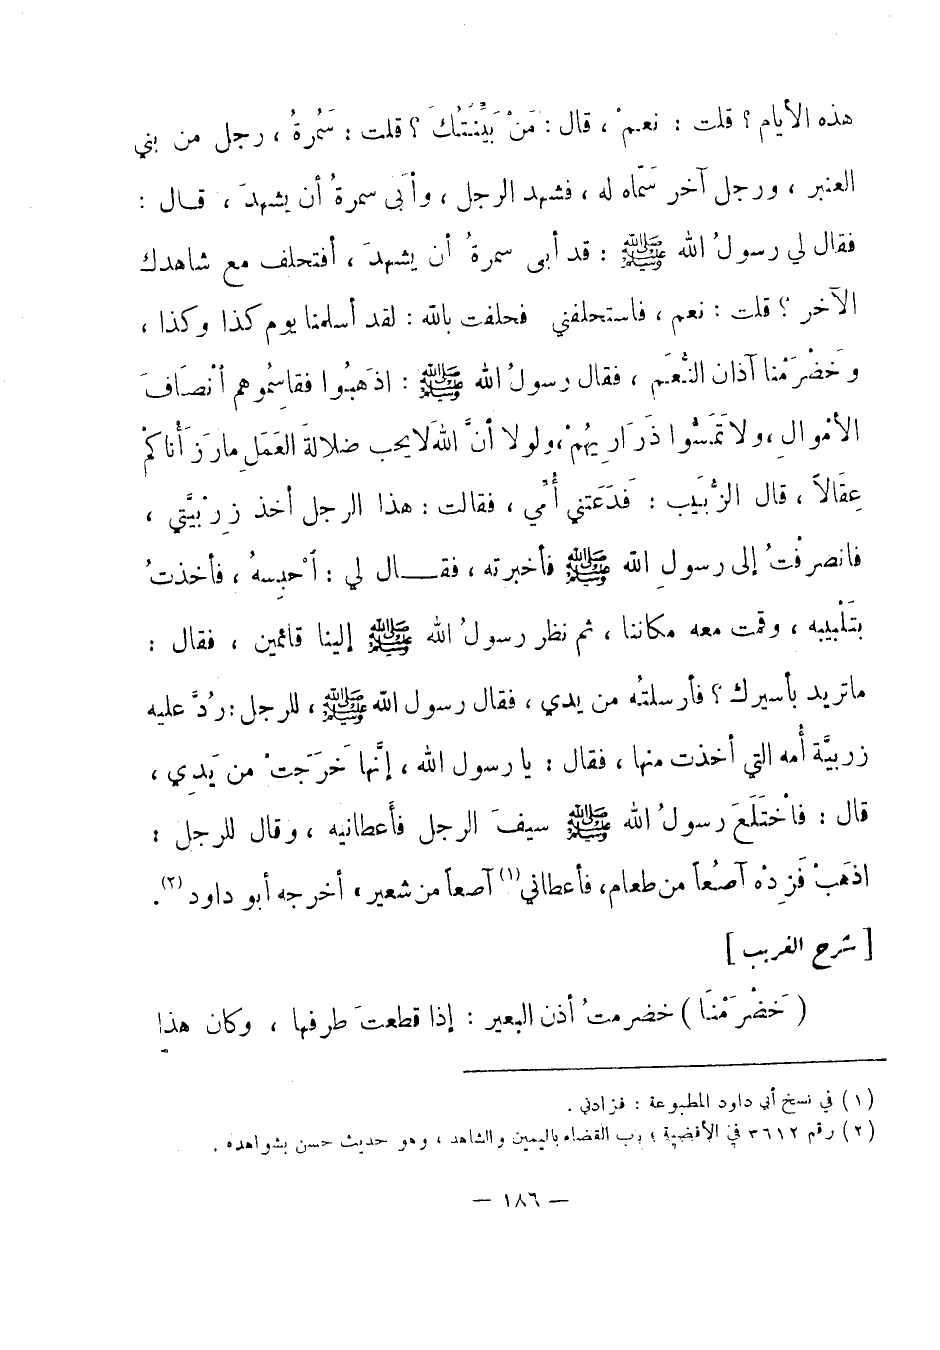 هذه الأيام ؟ قلت : نعمْ ، قال : مَنْ بَيِّنَتُكَ ؟ قلت : سَمُرةُ ، رجل من بني
العنبر ، ورجل آخر سَمّاه له ، فشهد الرجل ، وأبَى سمرةُ أن يشهدَ ، قــال :
فقال لي رسولُ الله ﷺ : قد أبى سمرةُ أن يشهدَ ، أفتحلف مع شاهدك
الآخر ؟ قلت : نعم ، فاستحلفني فحلفت بالله : لقد أسلمنا يوم كذا وكذا ،
وخَضْرَمْنا آذان النَّعَم ، فقال رسولُ الله ﷺ : اذهبُوا فقاسِمُوهم أنْصَافَ
الأمْوالِ ، ولا تَمَسُّوا ذَرَارِيهُمْ ، ولولا أنَّ اللهَ لا يحب ضلالةَ العَمَلِ مارَزَأْناكمْ
عِقَالاً ، قال الزُّبَيب : فَدَعَتني أُمِّي ، فقالت : هذا الرجل أخذ زِرْبيَّتي ،
فانصرفْتُ إلى رسولِ الله ﷺ فأخبرته ، فقــال لي : اْحبِسهُ ، فأخذتُ
بتَلْبيبه ، وقمت معه مكاننا ، ثم نظر رسولُ الله ﷺ إلينا قائمين ، فقال :
ماتريد بأسيرك ؟ فأرسلتُه من يدي ، فقال رسول الله ﷺ ، للرجل : رُدَّ عليه
زربيَّة أُمه التي أخذت منها ، فقال : يا رسول الله ، إنَّها خَرَجَتْ من يَدِي ،
قال : فاخْتَلَعَ رسولُ الله ﷺ سيفَ الرجل فأَعطانيه ، وقال للرجل :
اذهَبْ فَزِدْه آصُعاً من طعام ، فأعطاني(١) آصعاً من شعير ، أخرجه أبو داود (٢) .
[ شرح الغريب ]
( خَضْرَمْنَا ) خضرمتُ أذن البعير : إذا قطعتَ طرفها ، وكان هذا
(١) في نسخ أبي داود المطبوعة : فزادني .
(٢) رقم ٣٦١٢ في الأقضية ؛ باب القضاء باليمين والشاهد ، وهو حديث حسن بشواهده .
— ١٨٦ —